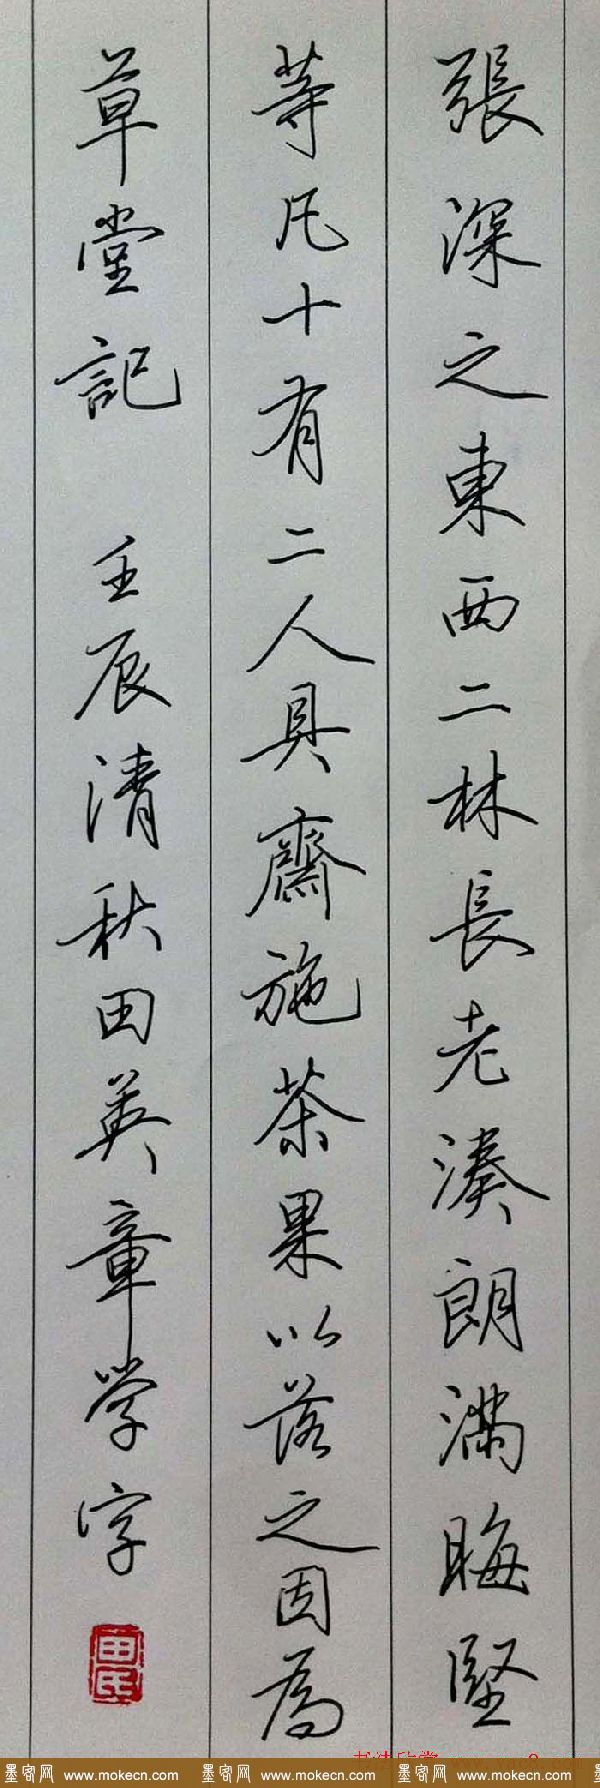 張深之東西二林長老湊朗滿晦堅
等凡十有二人具齋施茶果以落之因為
草堂記 壬辰清秋田英章学字
田氏
墨客网 www.mokecn.com 墨客网 www.mokecn.com 墨客网 www.mokecn.com